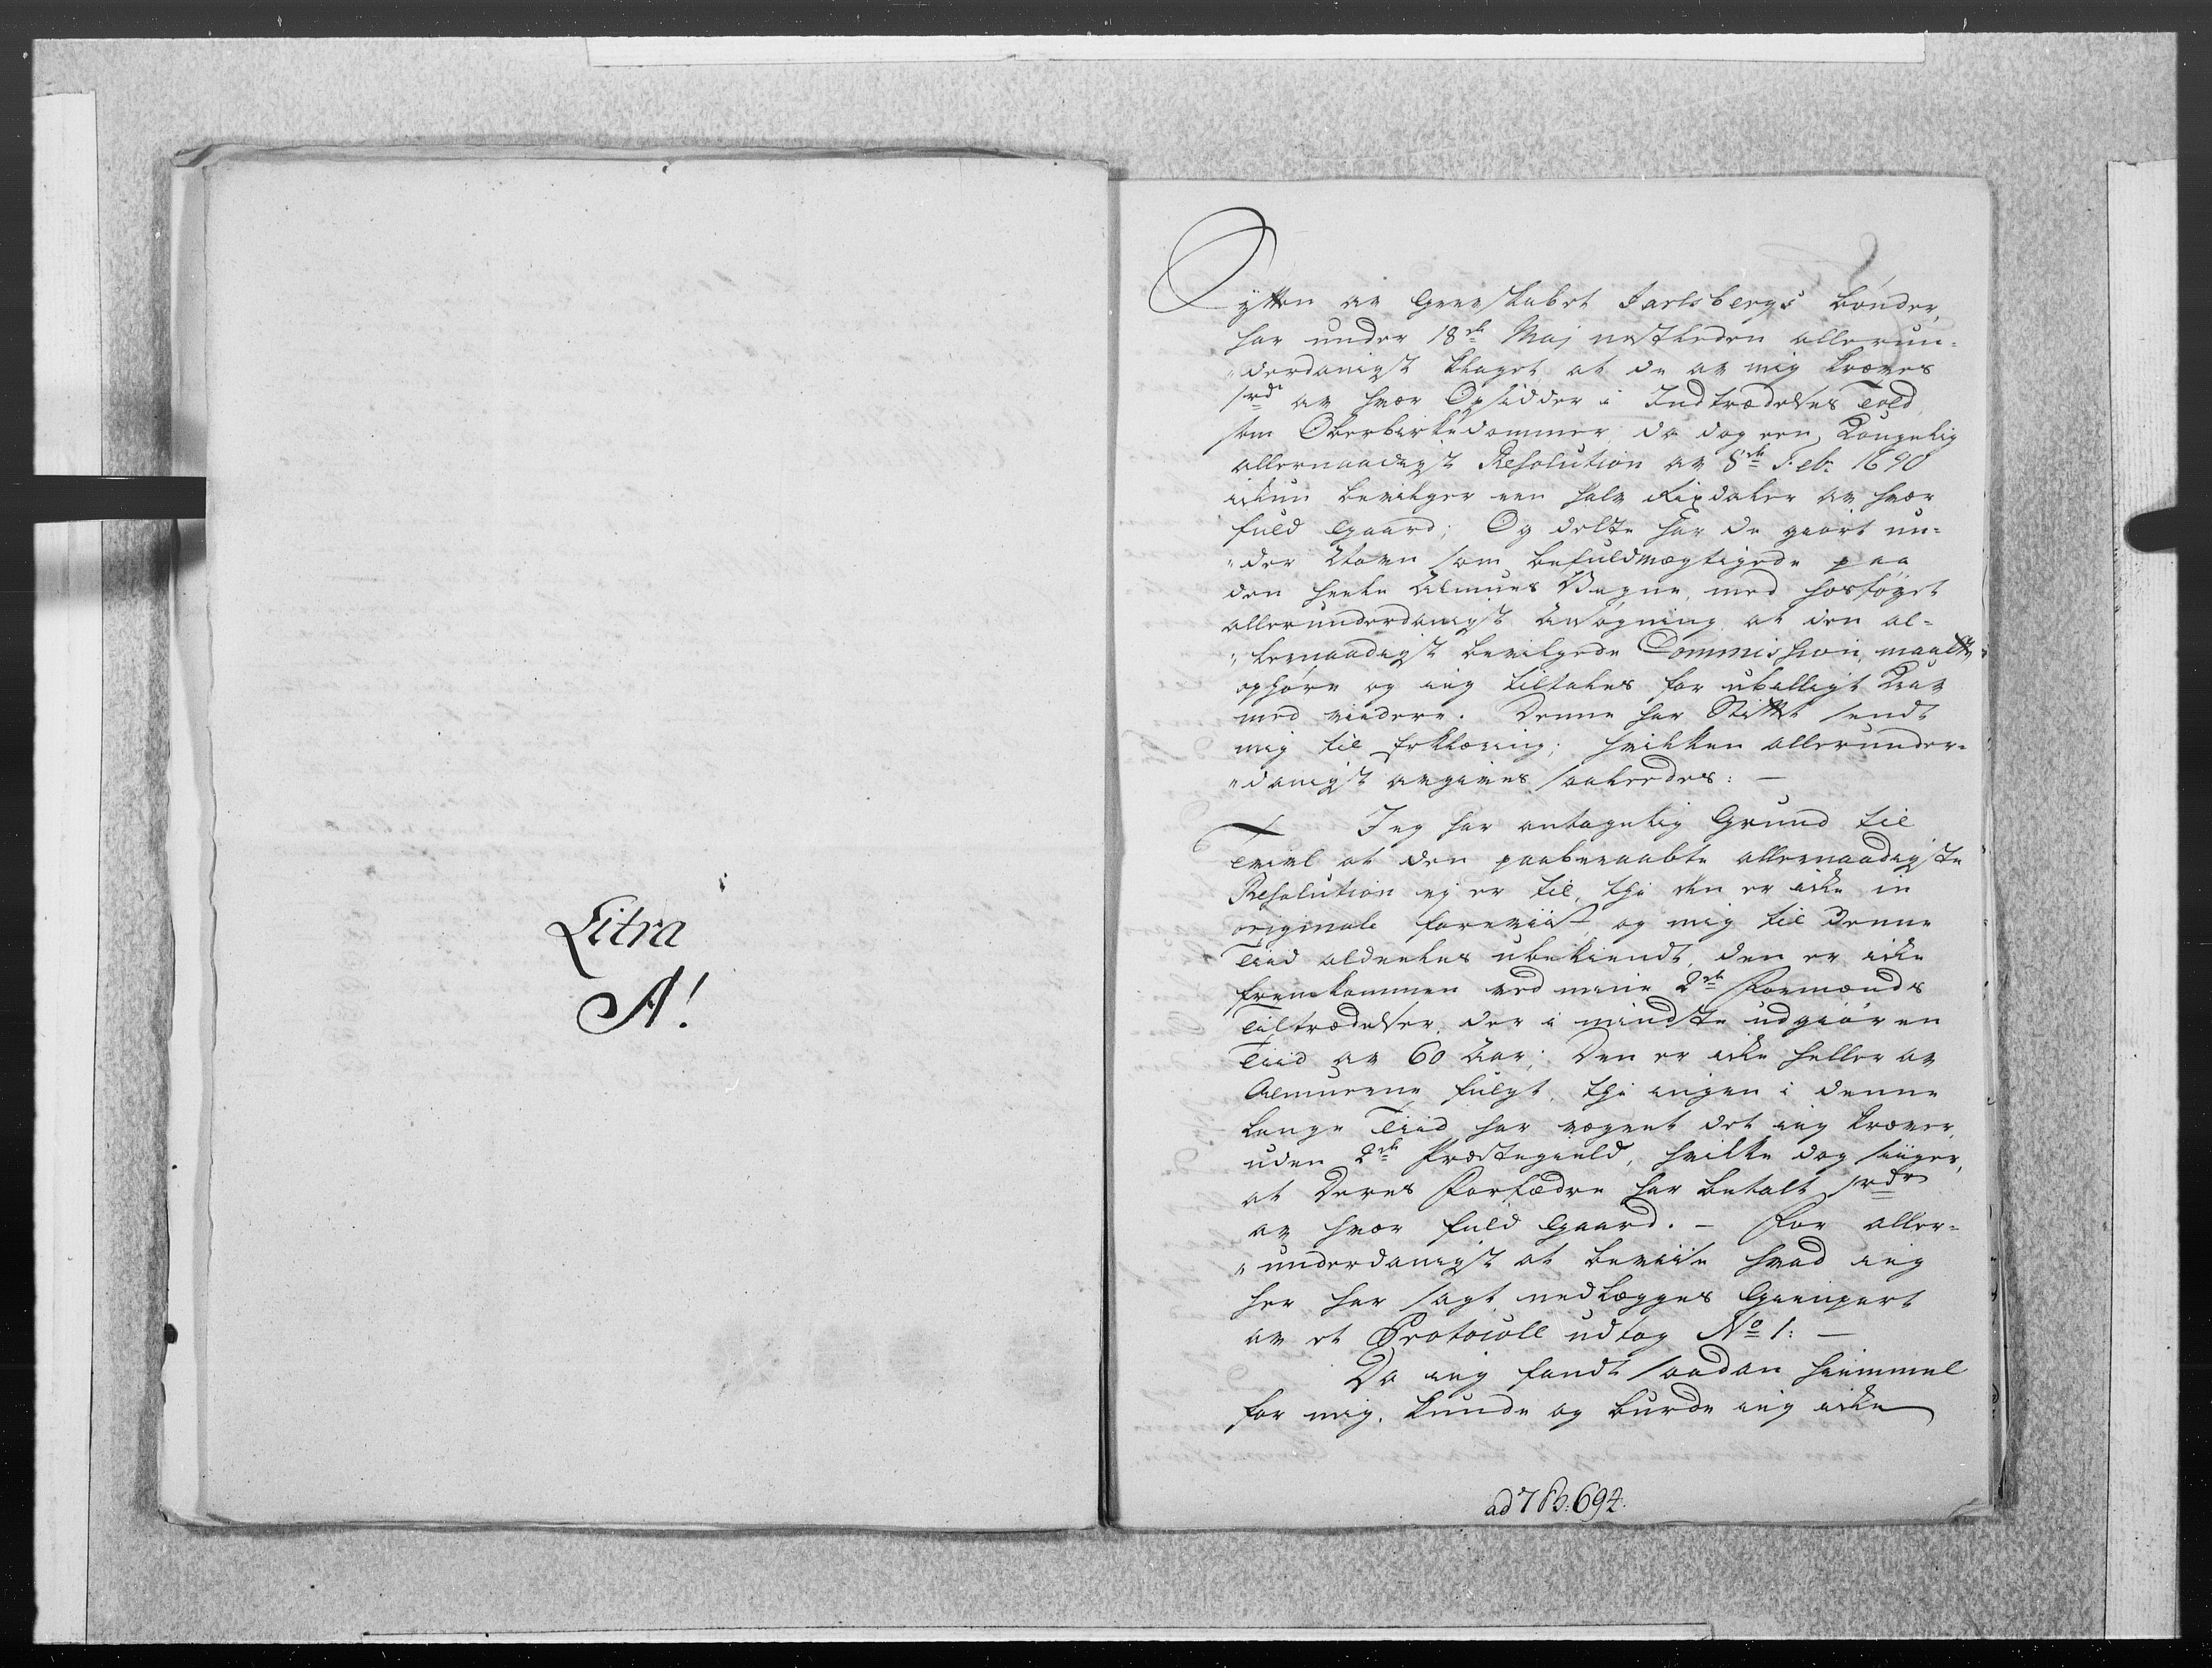 Litra
A!
Otten av Grevskabet Jarlsbergs bønder,
har under 18de Maj nestleden allerun-
derdanigst klaget at de av mig kræves
1rdr av hver Opsidder i Indtrædelses Told
som Oberbirkedommer, da dog een Kongelig
allernaadigst Resolution av 8de Feb. 1690
ickun bevilger een halv Rixdaler av hver
fuld Gaard; Og dette har de giort un-
der Navn som befuldmægtigede paa
den heele Almues Vegne, med hosføyet
allerunderdanigst Ansøgning at den al-
lernaadigst bevilgede Commission maatte
ophøre og ieg tiltales for ubilligt Krav
med viidere. Denne har Stiftet sendt
mig til Erklæring; hvilken allerunder-
danigst avgives saaledes: —
Jeg har antagelig Grund til
Tvivl at den paaberaabte allernaadigste
Resolution ej er til, thi den er icke in
originale foreviist, og mig til denne
Tiid aldeeles ubekiendt, den er icke
fremkommen ved mine 2de Formænds
Tiltrædelser, der i mindste udgiør en
Tiid av 60 Aar; Den er icke heller av
Almuerne fulgt, thi ingen i denne
lange Tiid har vægret det ieg kræver,
uden 2de Præstegield, hvilke dog siiger,
at deres Forfædre har betalt 1rdr
av hver fuld Gaard. — For aller-
underdanigst at beviise hvad ieg
her har sagt nedlægges Gienpart
av et Protocoll udtog No 1: —
Da ieg fandt saadan hiemmel
for mig, kunde og burde ieg icke
ad 7 B: 692.